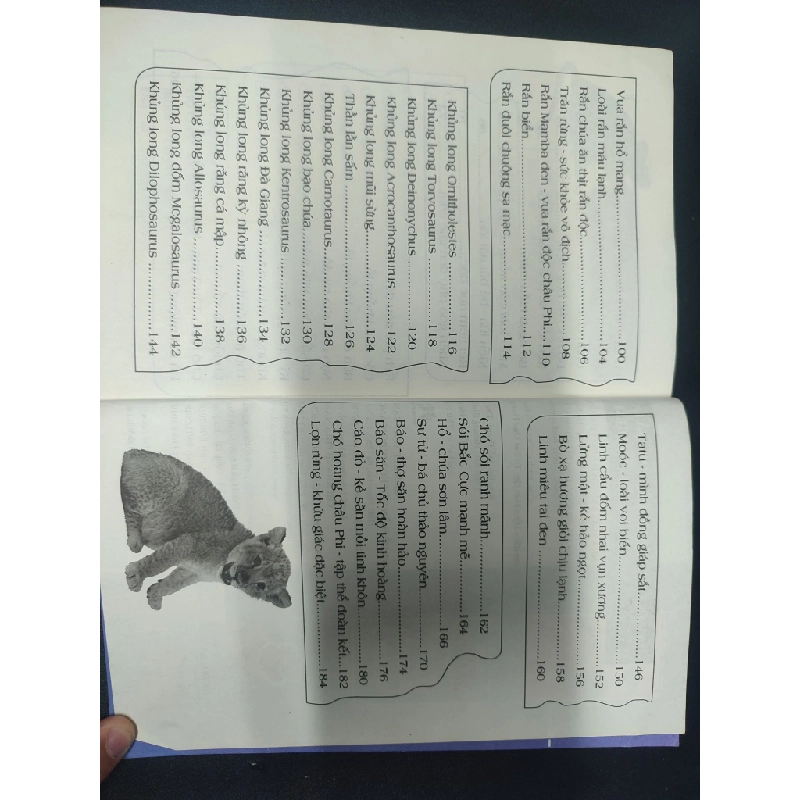 Vua rắn hổ mang..............................100
Loài rắn máu lạnh............................104
Rắn chúa ăn thịt rắn độc....................106
Trăn rừng - sức khỏe vô địch..............108
Rắn Mamba đen - vua rắn độc châu Phi....110
Rắn biển.......................................112
Rắn đuôi chuông sa mạc....................114
Khủng long Ornitholestes ...............116
Khủng long Torvosaurus ...............118
Khủng long Deinonychus ...............120
Khủng long Acrocanthosaurus ........122
Khủng long mũi sừng....................124
Thằn lằn sấm ............................126
Khủng long Carnotaurus ...............128
Khủng long bạo chúa....................130
Khủng long Kentrosaurus ..............132
Khủng long Đà Giang ...................134
Khủng long răng kỳ nhông ............136
Khủng long răng cá mập ...............138
Khủng long Allosaurus .................140
Khủng long đốm Megalosaurus ........142
Khủng long Dilophosaurus .............144
Tatu - mình đồng giáp sắt...............146
Moóc - loài voi biển.......................150
Linh cẩu đốm nhai vụn xương...........152
Lửng mật - kẻ hảo ngọt...................156
Bò xạ hương giỏi chịu lạnh..............158
Linh miêu tai đen .........................160
Chó sói ranh mãnh........................162
Sói Bắc Cực mạnh mẽ.....................164
Hổ - chúa sơn lâm.........................166
Sư tử - bá chủ thảo nguyên..............170
Báo - thợ săn hoàn hảo...................174
Báo săn - Tốc độ kinh hoàng............176
Cáo đỏ - kẻ săn mồi tinh khôn..........180
Chó hoang châu Phi - tập thể đoàn kết...182
Lợn rừng - khứu giác đặc biệt...........184